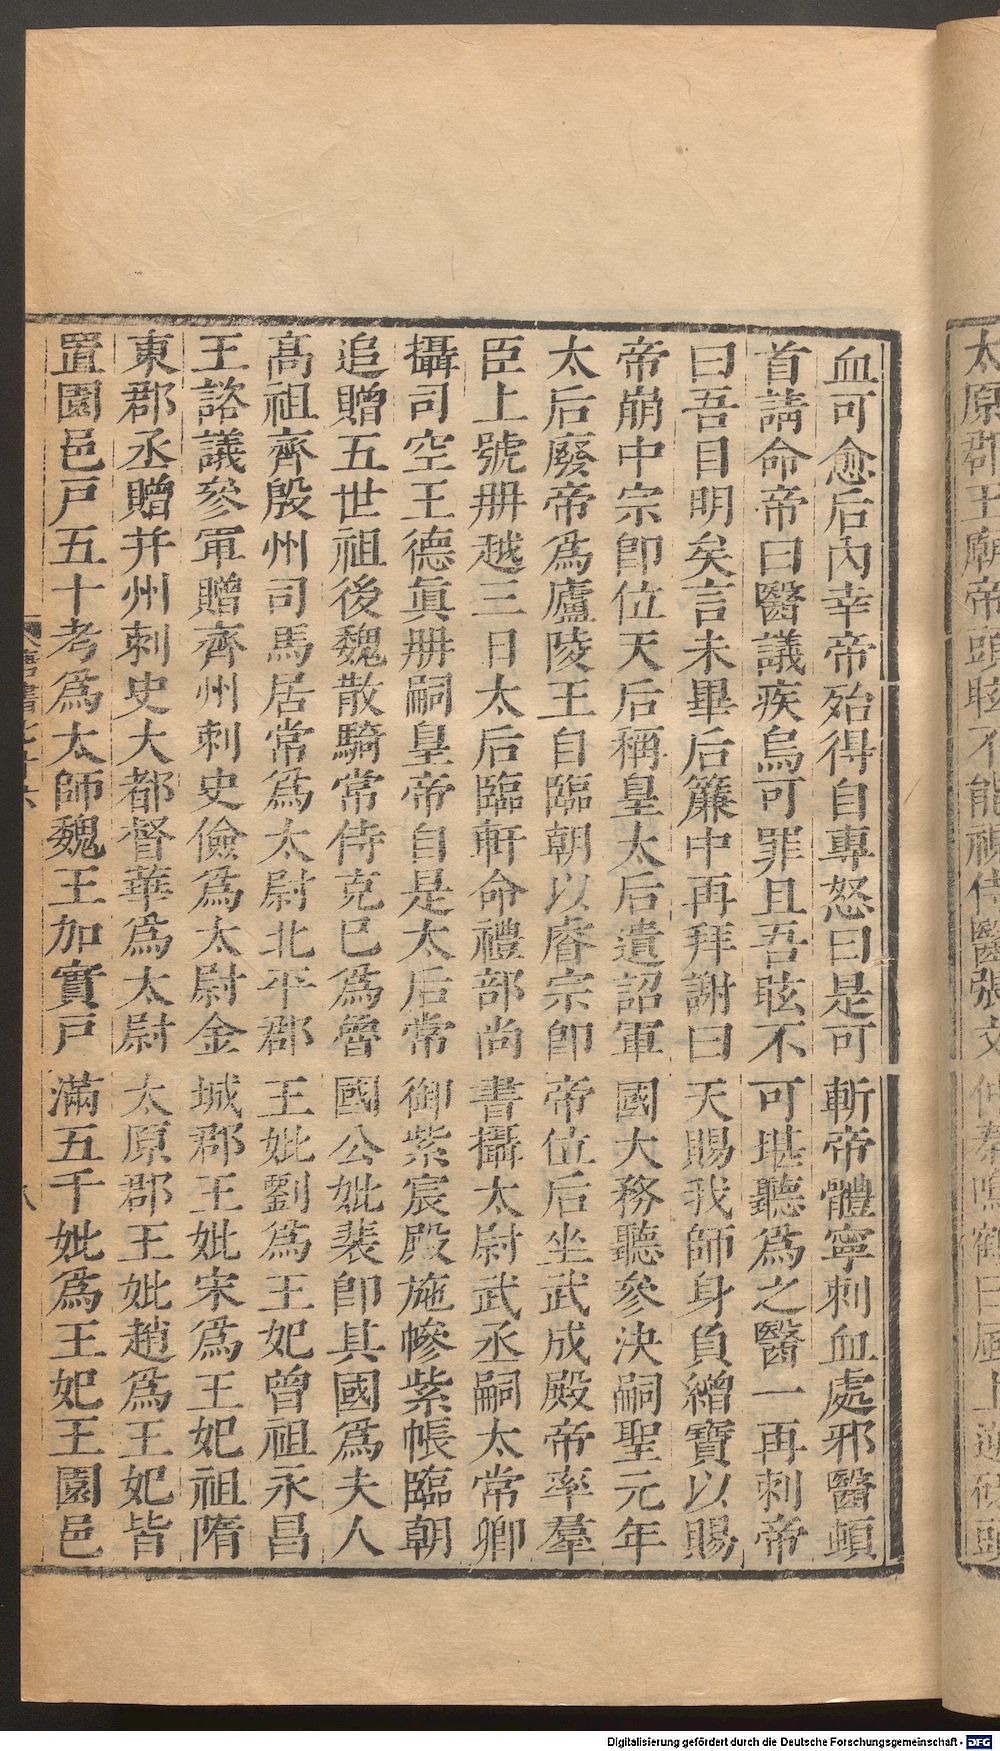 太原郡王廟帝頭眩不能視侍醫張文仲秦鳴鶴曰風上逆砭頭
血可愈后內幸帝殆得自專怒曰是可斬帝體寧刺血處邪醫頓
首請命帝曰醫議疾烏可罪且吾眩不可堪聽爲之醫一再刺帝
曰吾目明矣言未畢后簾中再拜謝曰天賜我師身負繒寶以賜
帝崩中宗卽位天后稱皇太后遺詔軍國大務聽參決嗣聖元年
太后廢帝爲廬陵王自臨朝以睿宗卽帝位后坐武成殿帝率羣
臣上號册越三日太后臨軒命禮部尚書攝太尉武丞嗣太常卿
攝司空王德眞册嗣皇帝自是太后常御紫宸殿施幓紫帳臨朝
追贈五世祖後魏散騎常侍克巳爲魯國公妣裴卽其國爲夫人
高祖齊殷州司馬居常爲太尉北平郡王妣劉爲王妃曾祖永昌
王諮議參軍贈齊州刺史儉爲太尉金城郡王妣宋爲王妃祖隋
東郡丞贈并州刺史大都督華爲太尉太原郡王妣趙爲王妃皆
置園邑戸五十考爲太師魏王加實戸滿五千妣爲王妃王園邑
唐書七十六
八
Digitalisierung gefördert durch die Deutsche Forschungsgemeinschaft - DFG